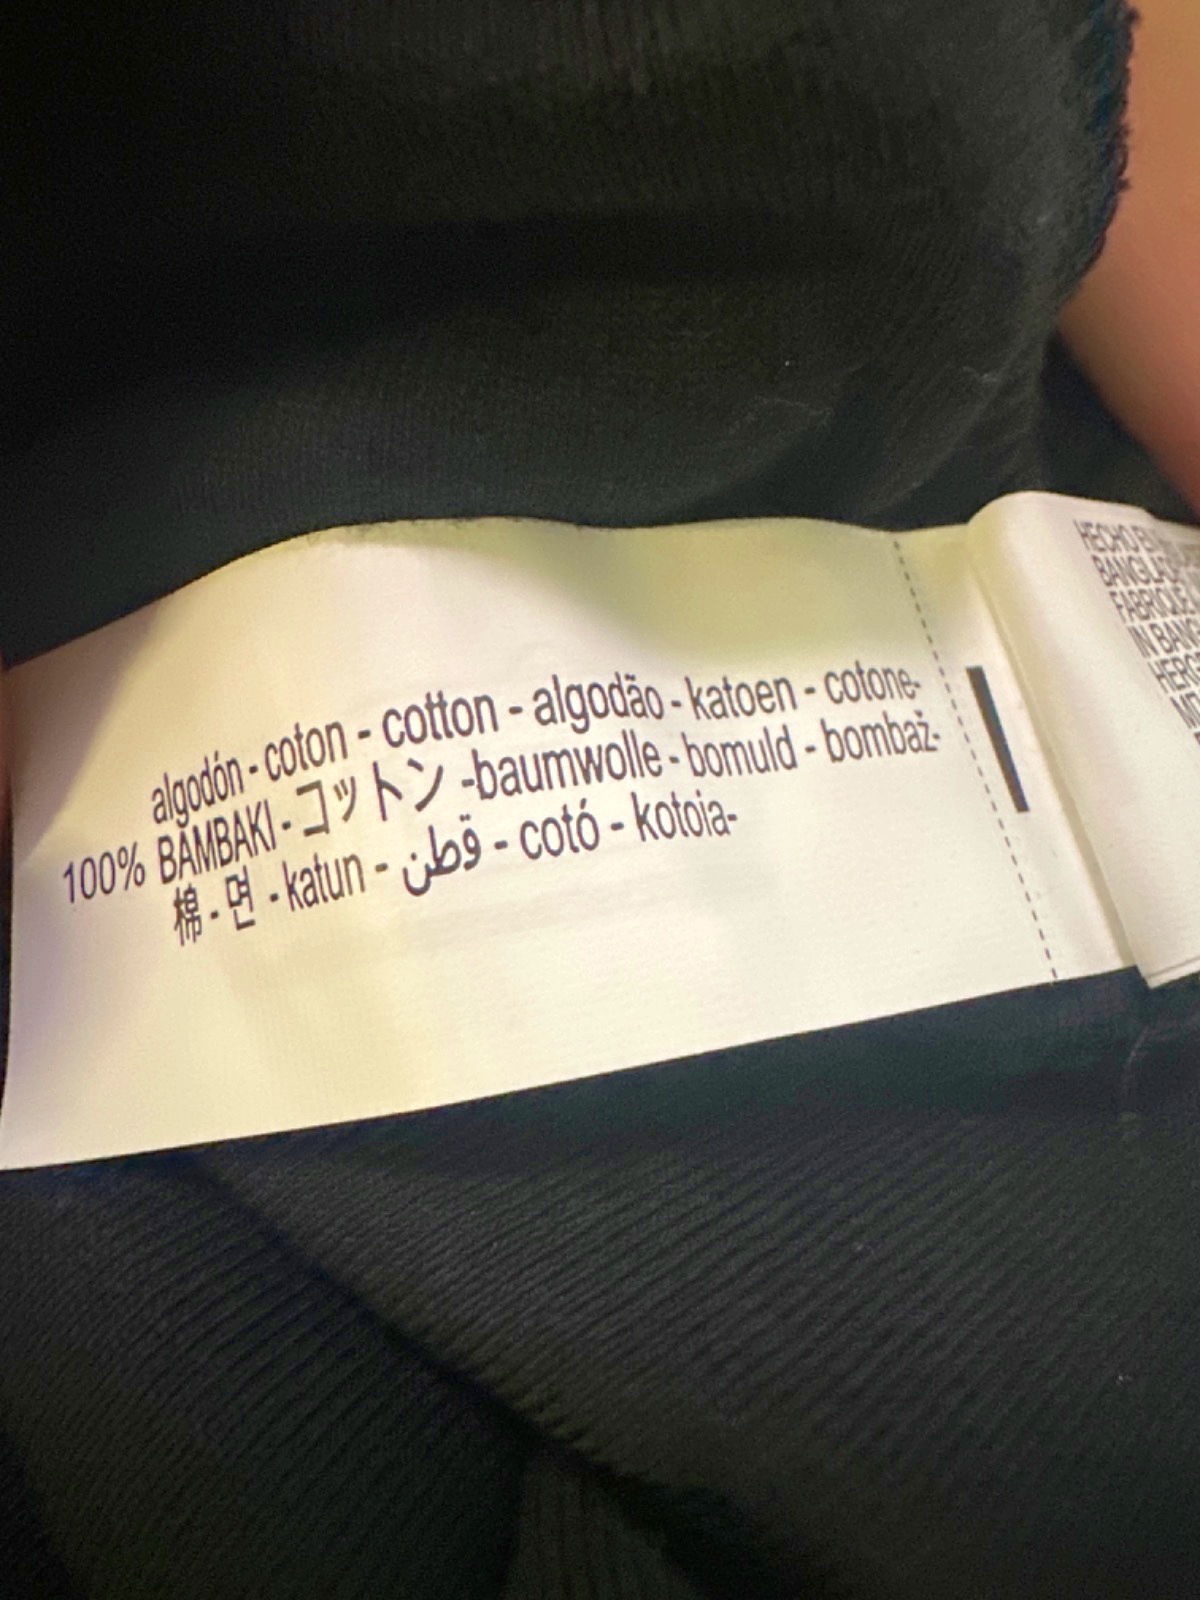 algodón - coton - cotton - algodão - katoen - cotone-
100% BAMBAKI - コットン -baumwolle - bomuld - bombaž-
棉 - 면 - katun - قطن - cotó - kotoia-
HECHO EN
BANGLAD
FABRIQUÉ
IN BANG